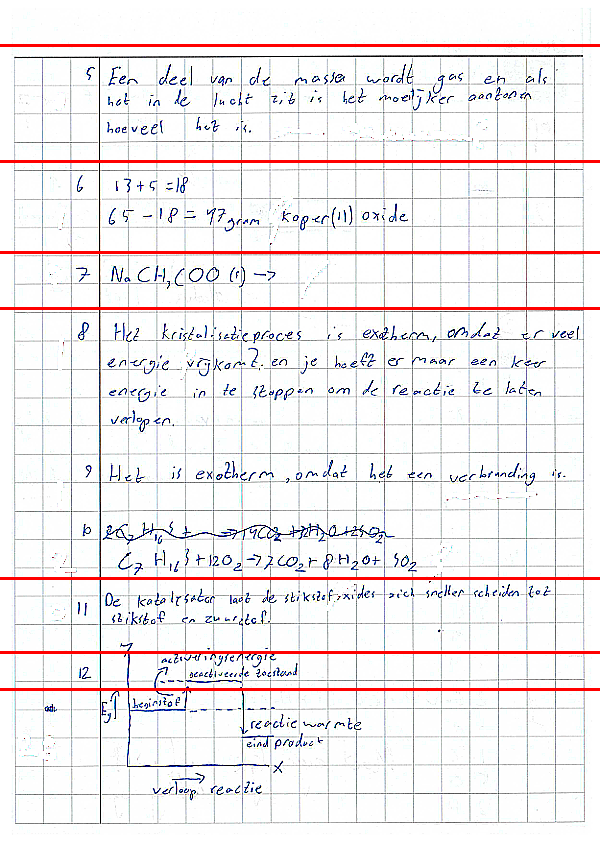 5 Een deel van de massa wordt gas en als
het in de lucht zit is het moeilijker aantonen
hoeveel het is.
6 13+5=18
65-18=47gram koper(II) oxide
7 NaCH3COO (l) →
8 Het kristalisatieproces is exotherm, omdat er veel
energie vrijkomt. en je hoeft er maar een keer
energie in te stoppen om de reactie te laten
verlopen.
9 Het is exotherm, omdat het een verbranding is.
10
C7H16S+12O2→7CO2+8H2O+SO2
11 De katalysator laat de stikstofoxides zich sneller scheiden tot
stikstof en zuurstof.
activeringsenergie
12 geactiveerde toestand
Eg beginstof
reactiewarmte
eind product
X
verloop reactie